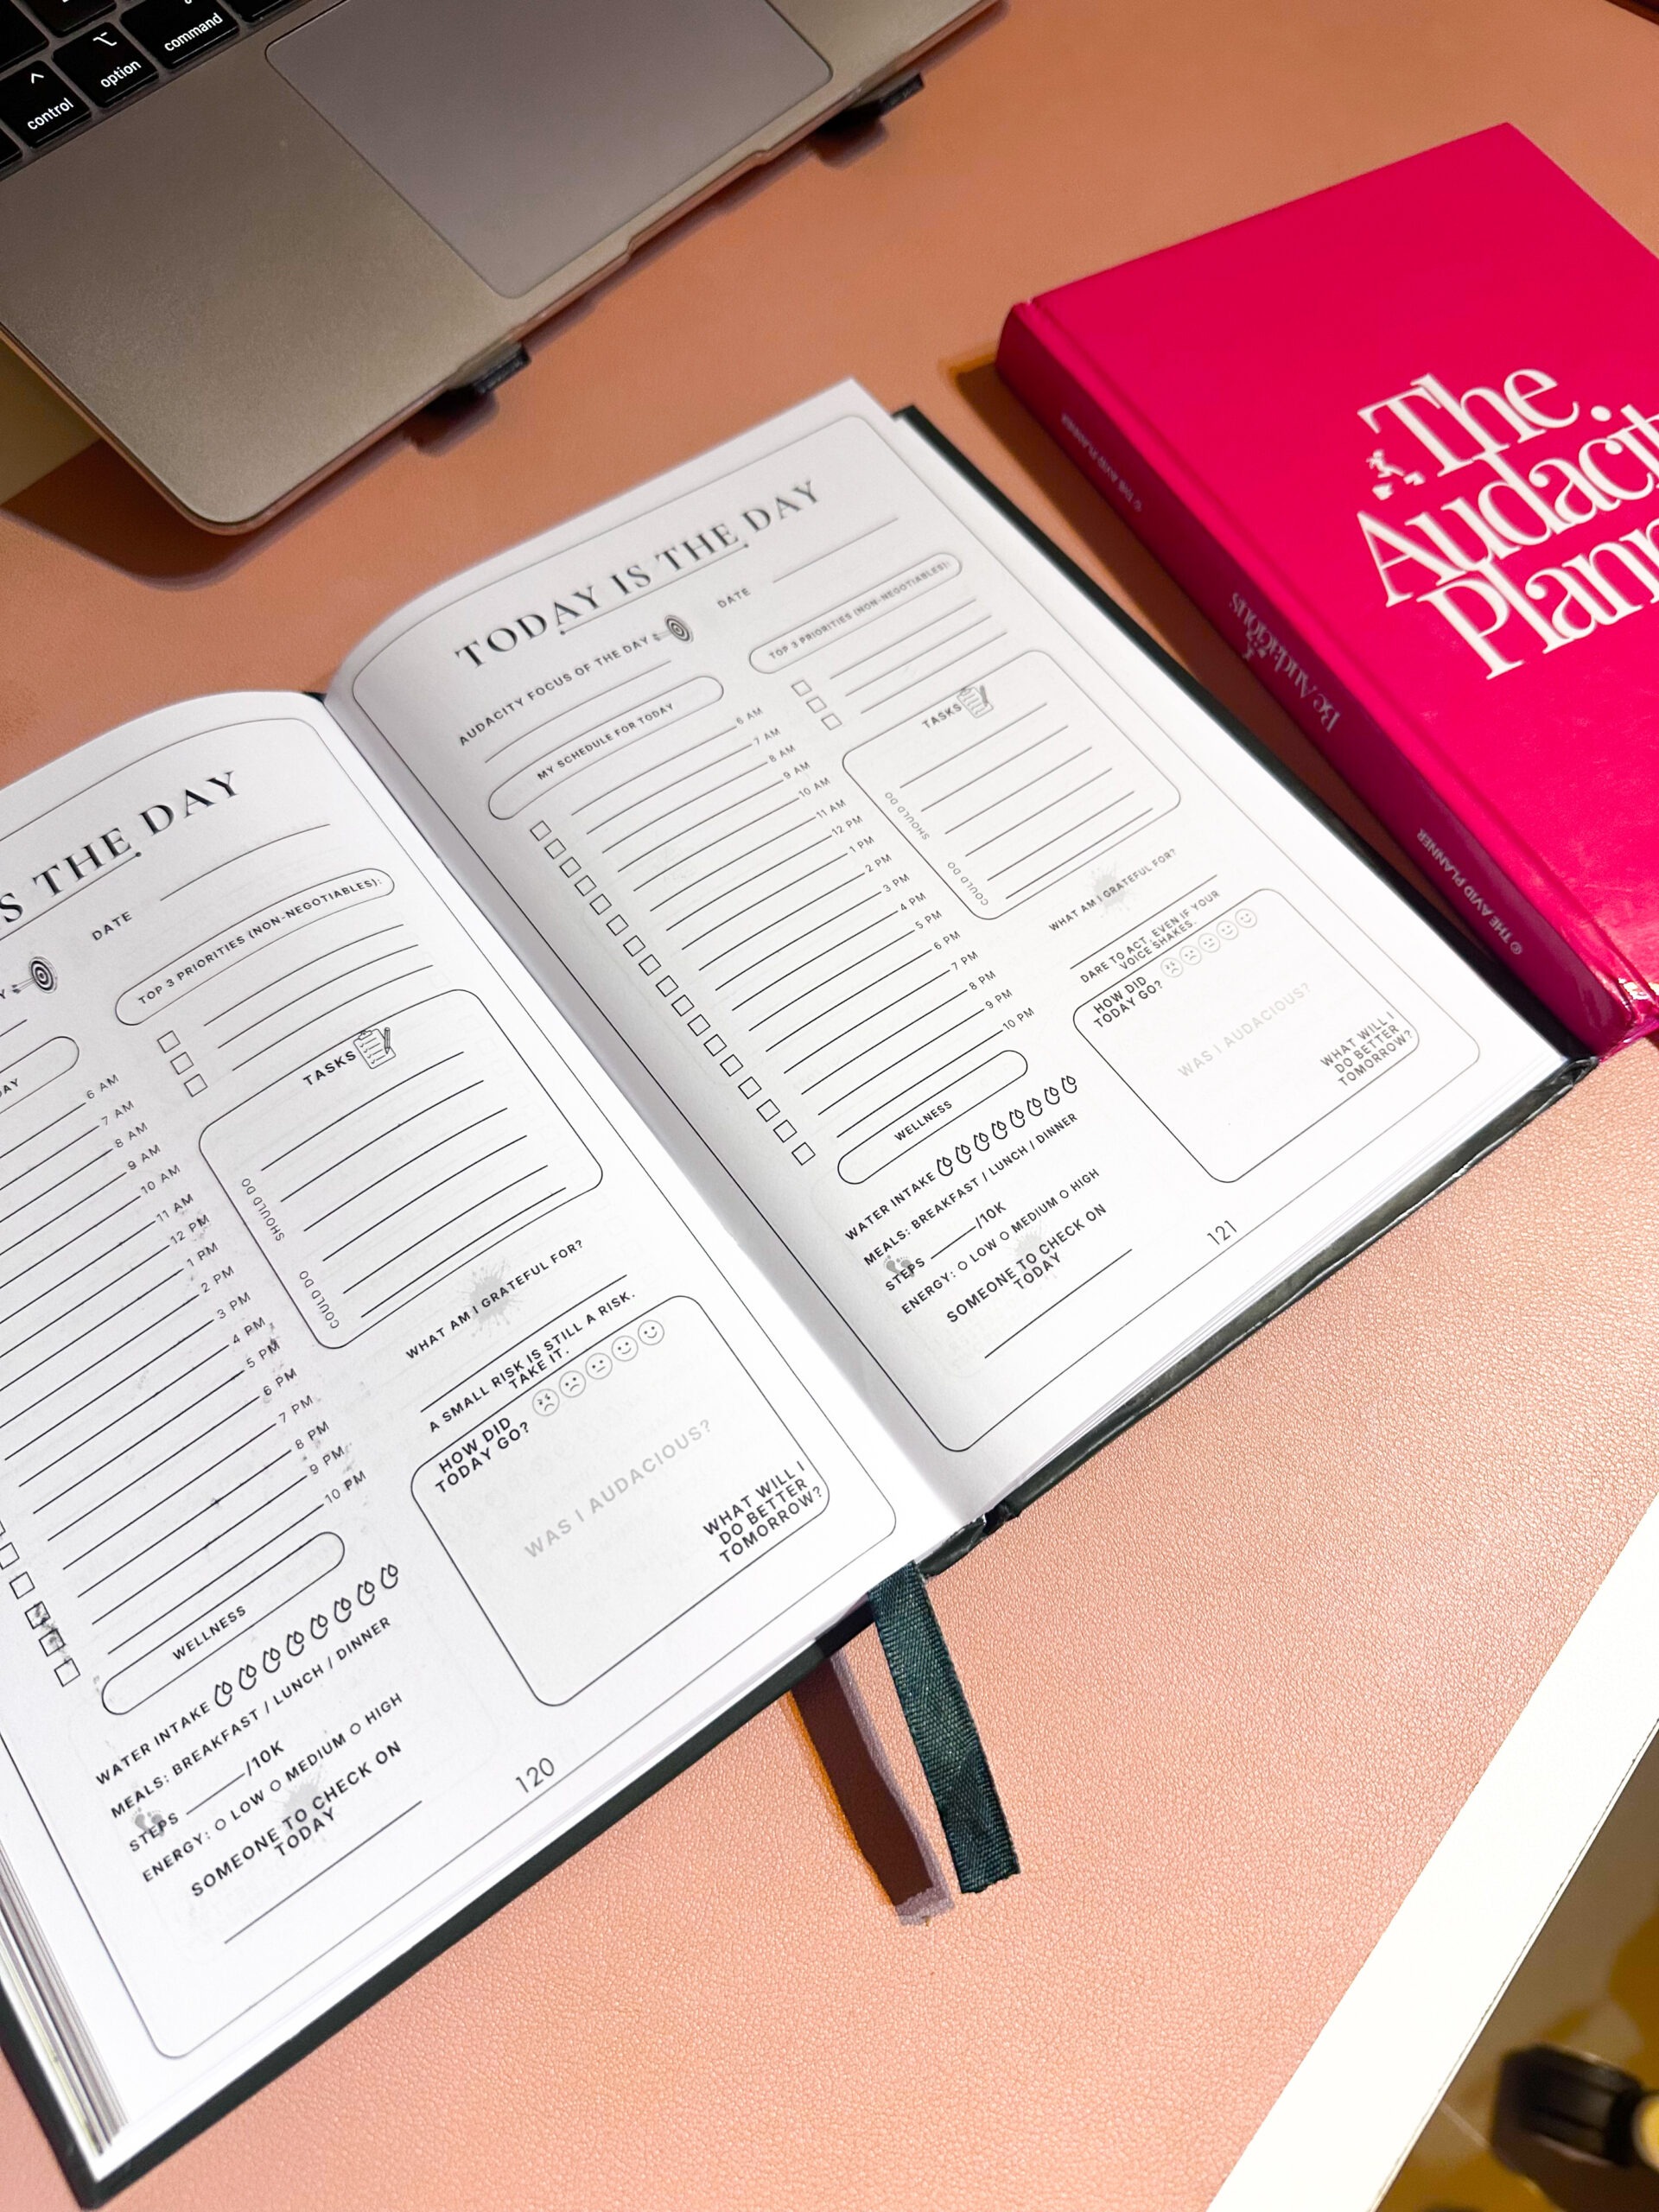 control
option
command
S THE DAY
Y
DATE
DAY
6 AM
7 AM
8 AM
9 AM
10 AM
11 AM
12 PM
1 PM
2 PM
3 PM
4 PM
5 PM
6 PM
7 PM
8 PM
9 PM
10 PM
WELLNESS
WATER INTAKE
MEALS: BREAKFAST / LUNCH / DINNER
STEPS /10K
ENERGY: O LOW O MEDIUM O HIGH
SOMEONE TO CHECK ON
TODAY
TOP 3 PRIORITIES (NON-NEGOTIABLES):
TASKS
SHOULD DO
COULD DO
WHAT AM I GRATEFUL FOR?
A SMALL RISK IS STILL A RISK.
TAKE IT.
HOW DID
TODAY GO?
WAS I AUDACIOUS?
WHAT WILL I
DO BETTER
TOMORROW?
120
TODAY IS THE DAY
AUDACITY FOCUS OF THE DAY
DATE
MY SCHEDULE FOR TODAY
6 AM
7 AM
8 AM
9 AM
10 AM
11 AM
12 PM
1 PM
2 PM
3 PM
4 PM
5 PM
6 PM
7 PM
8 PM
9 PM
10 PM
WELLNESS
WATER INTAKE
MEALS: BREAKFAST / LUNCH / DINNER
STEPS /10K
ENERGY: O LOW O MEDIUM O HIGH
SOMEONE TO CHECK ON
TODAY
TOP 3 PRIORITIES (NON-NEGOTIABLES):
TASKS
SHOULD DO
COULD DO
WHAT AM I GRATEFUL FOR?
DARE TO ACT, EVEN IF YOUR
VOICE SHAKES.
HOW DID
TODAY GO?
WAS I AUDACIOUS?
WHAT WILL I
DO BETTER
TOMORROW?
121
The
Audacit
Plann
© THE AVID PLANNER
Be Audacious
© THE AVID PLANNER